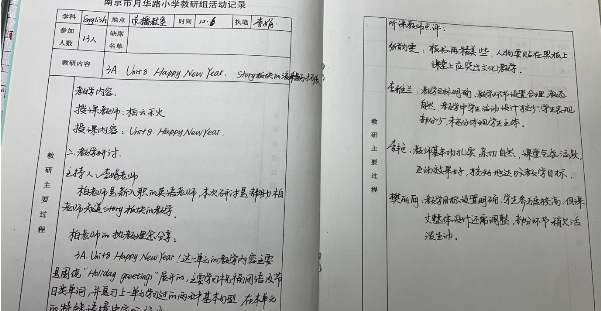 南京市月华路小学教研组活动记录
学科 English 地点 录播教室 时间 12.6 执笔 李皓
参加人数 13人 缺席名单
教研内容 3A Unit8 Happy New Year. Story板块
教研主要过程
一、教学内容:
授课教师:柏
授课内容:Unit8 Happy New Year.
二、教学研讨
主持人:李皓老师
柏老师是新入职的英语老师,本次研讨是帮助柏
老师知道story板块的教学。
柏老师的执教理念分享:
3A Unit8 Happy New Year!这一单元的教学内容主要
是围绕"Holiday greetings"展开的,主要学习礼貌用语及节
日类单词,并复习上一单元学习过的两种基本句型,在本单元
听课教师点评:
板书再精美些,人物要贴在黑板上
课堂上应突出文化教学。
教学目标明确,教学环节设置合理,教态
自然,教学中学生活动设计较少,学生表现
部分少,未充分体现学生主体。
教师基本功扎实,亲切自然,课堂气氛活跃,
互动效果好,较好地达成教学目标。
樊丽丽:教学目标设置明确,学生参与度较高,但课
文整体设计还需调整,部分环节稍欠活
泼生动。
教研主要过程